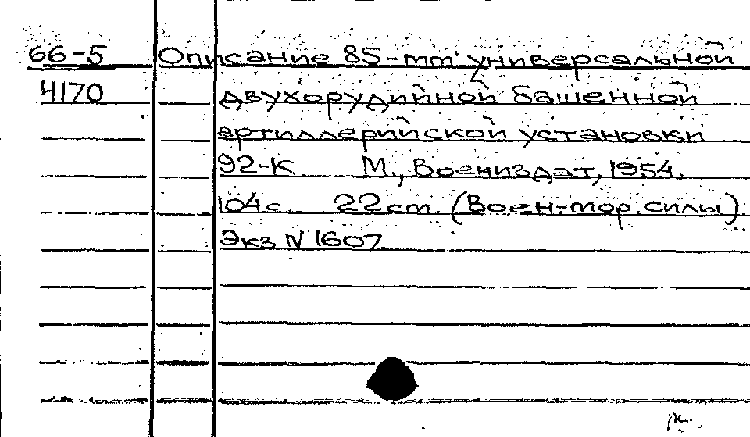 66-5 Описание 85-mm универсальной
4170 двухорудийной башенной
артиллерийской установки
92-К М., Воениздат, 1954.
104 с. 22 cm. (Воен-мор. силы)
Экз N 1607